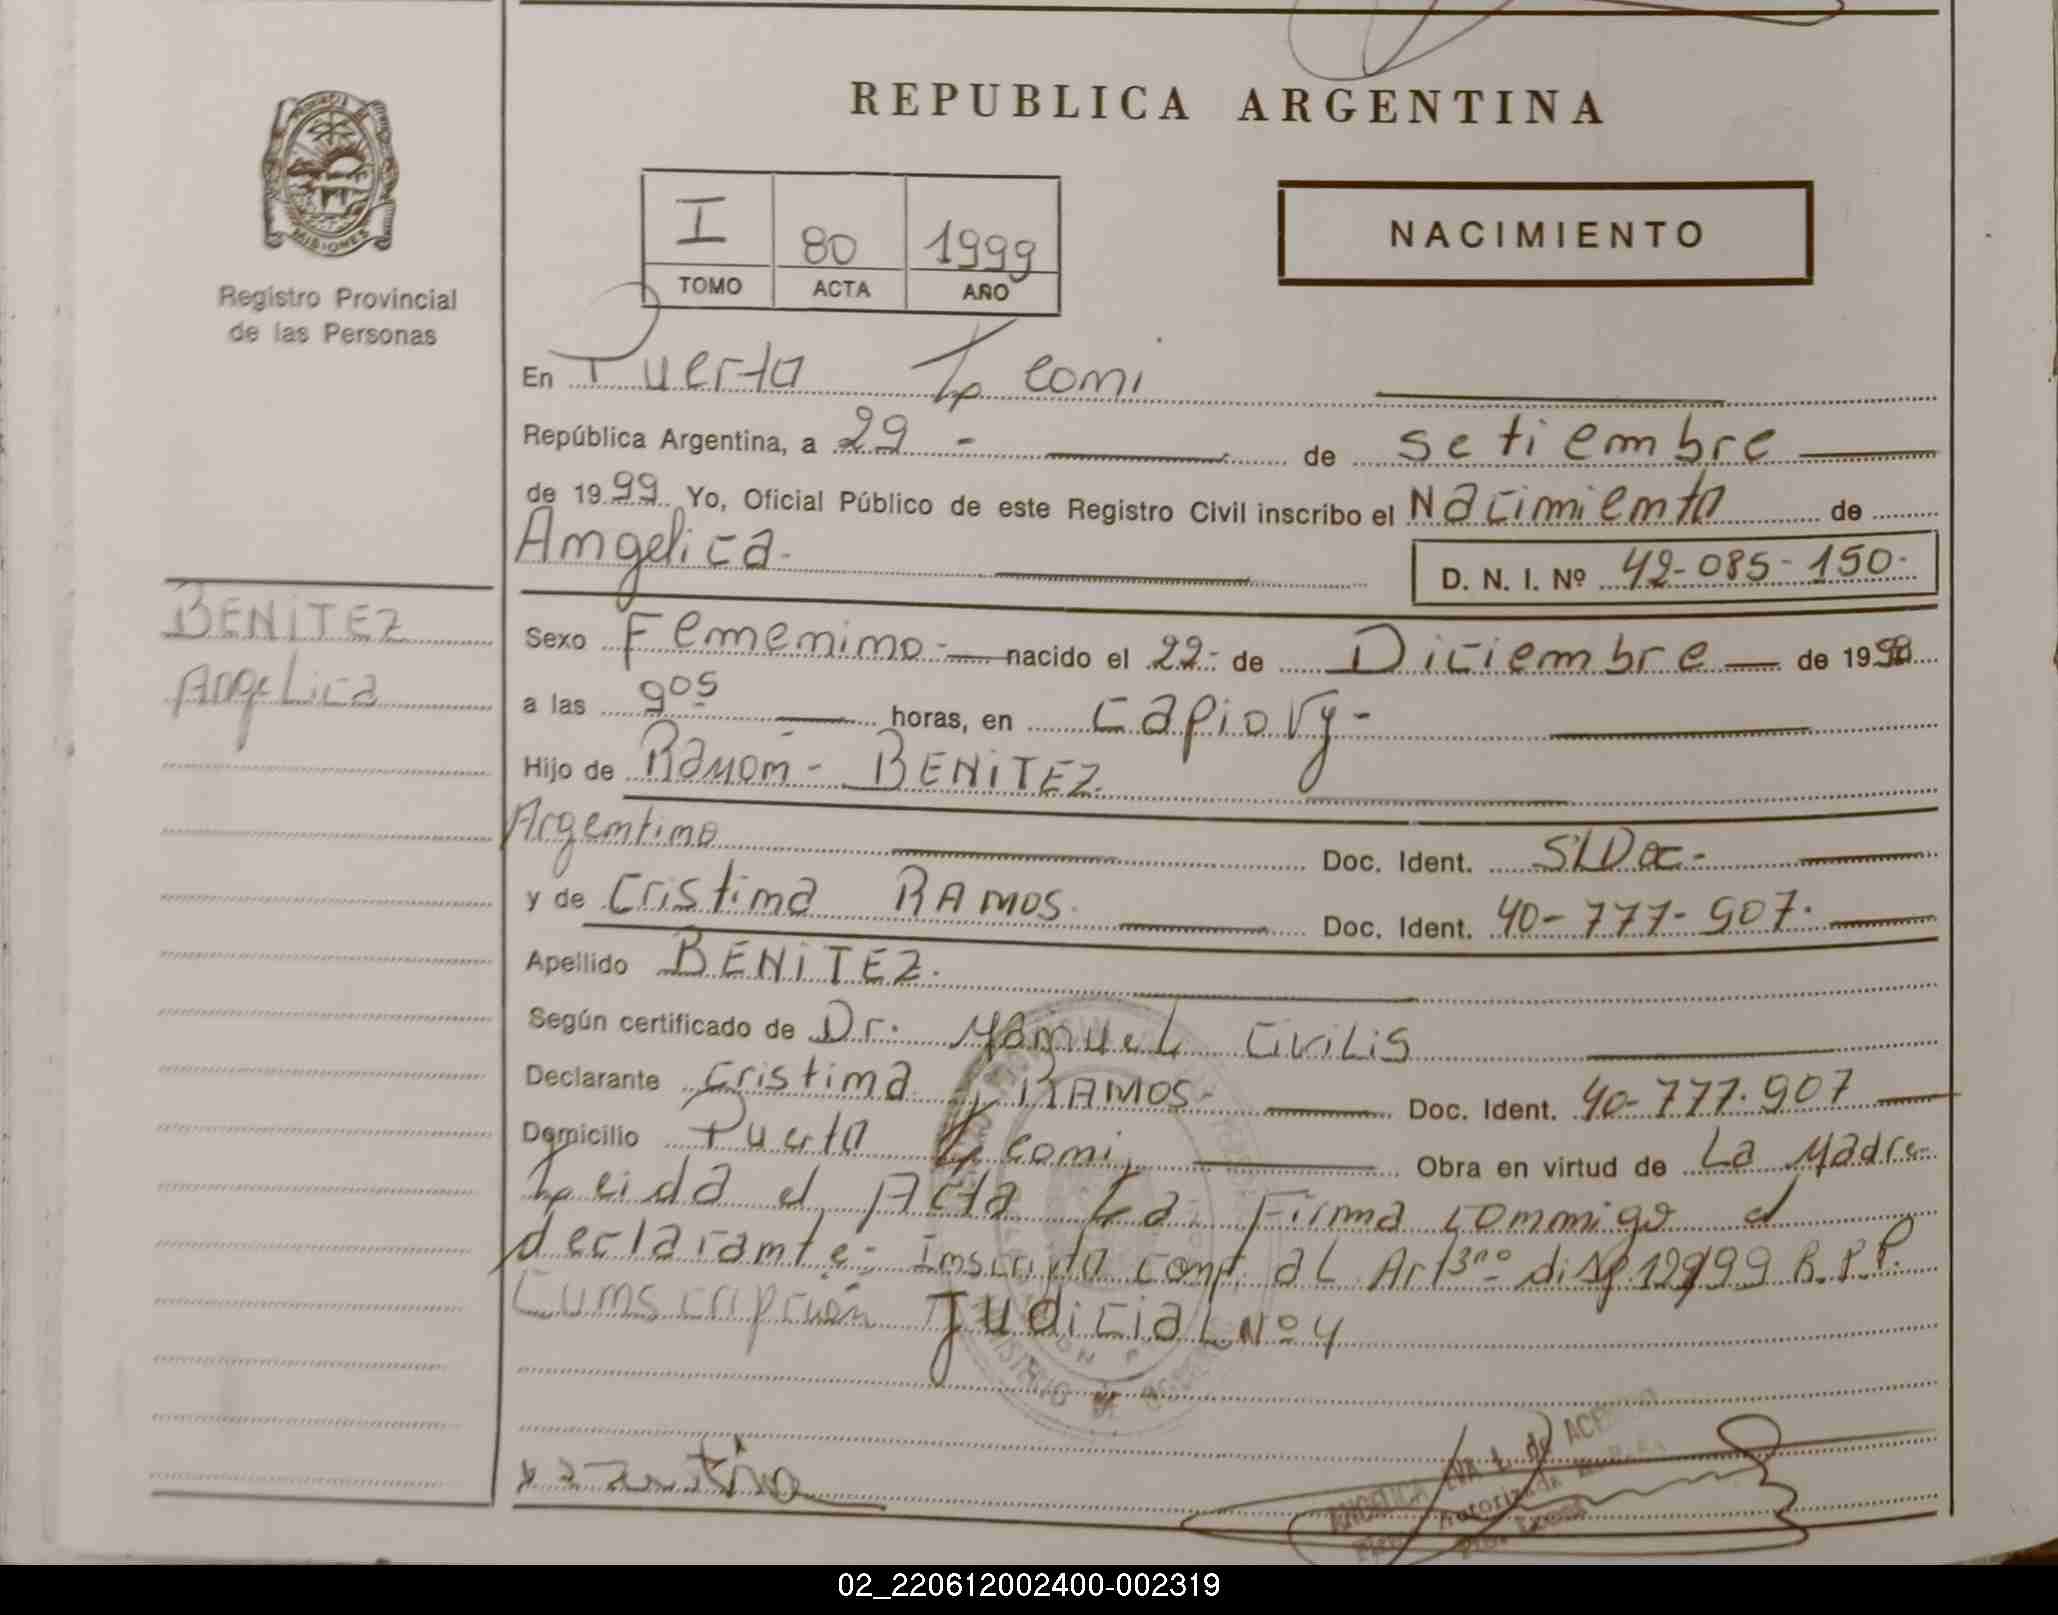 REPUBLICA ARGENTINA
MISIONES
Registro Provincial
de las Personas
I 80 1999
TOMO ACTA AÑO
NACIMIENTO
En Puerto Leoni
República Argentina, a 29 - de setiembre
de 1999 Yo, Oficial Público de este Registro Civil inscribo el Nacimiento de
Angelica.
D. N. I. Nº 42-085-150.
BENITEZ
Angelica
Sexo Femenino - nacido el 22- de Diciembre de 19
a las 9 05 horas, en Capiovy -
Hijo de Ramón - BENITEZ.
Argentino Doc. Ident. S/Doc -
y de Cristina RAMOS. Doc. Ident. 40-777-907.
Apellido BENITEZ.
Según certificado de Dr. Manuel Civilis
Declarante Cristina RAMOS- Doc. Ident. 40-777.907
Domicilio Puerto Leoni, Obra en virtud de La Madre
Leida el Acta La Firma conmigo el
declarante- Inscripta conf. al Art 3ro disp 12/99 R.P.P.
Judicial Nº 4
ANGELICA EVA L. de
Autorizada
02_220612002400-002319